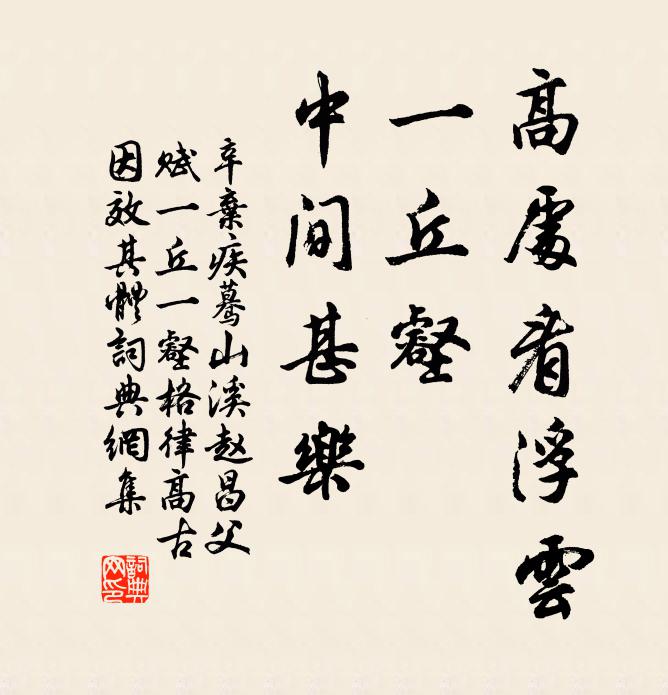 高處看浮雲
一丘壑
中間甚樂
辛棄疾驀山溪赵昌父
赋一丘一壑格律高古
因效其體詞典網集
詞典
网印